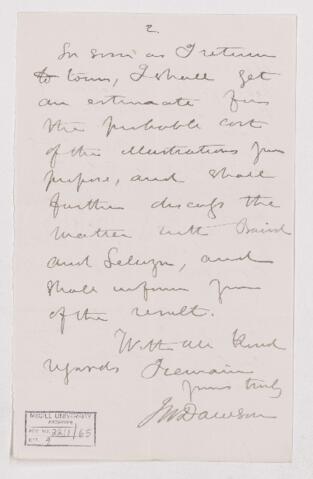 2.
So soon as I return
to town, I shall get
an estimate for
the probable cost
of the illustrations you
propose, and shall
further discuss the
matter with Baird
and Selwyn, and
shall inform you
of the result.
With all kind
regards I remain
yours truly
JWDawson
McGILL UNIVERSITY
ARCHIVES
ACC. NO. 2211/65
REF.